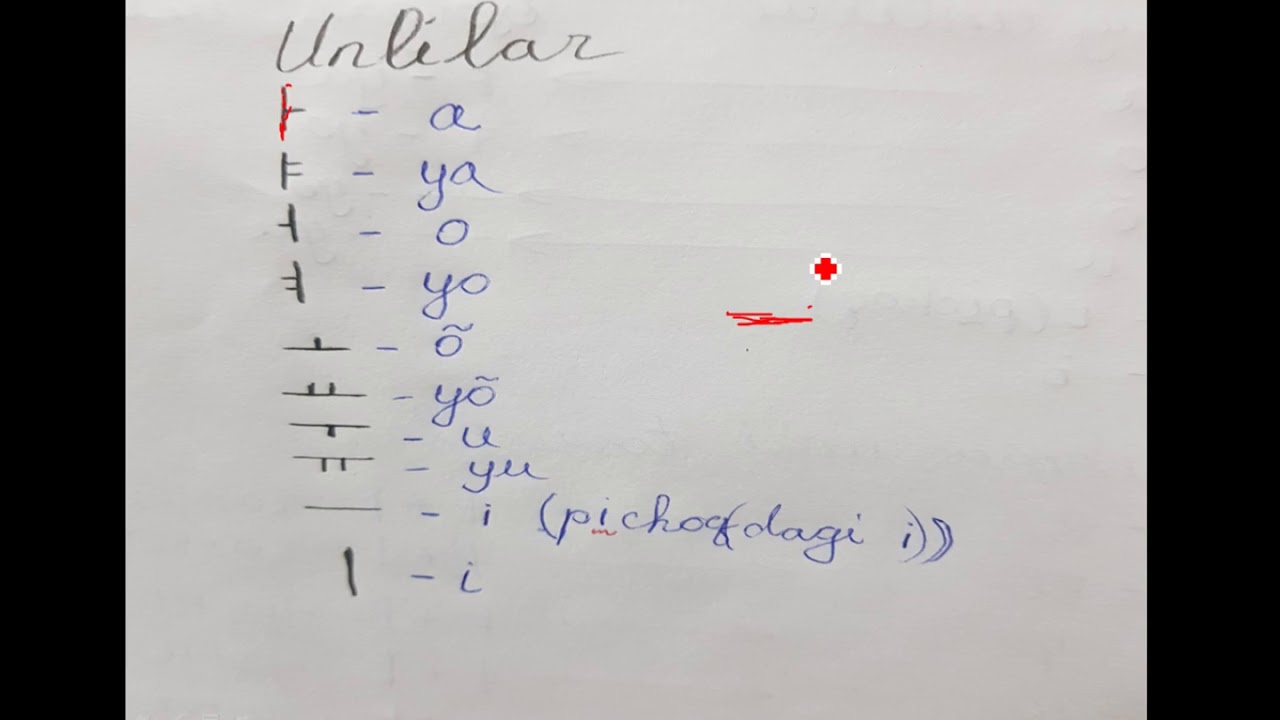 Unlilar
ㅏ - a
ㅑ - ya
ㅓ - o
ㅕ - yo
ㅗ - õ
ㅛ - yõ
ㅜ - u
ㅠ - yu
ㅡ - i (pichoq(dagi i))
ㅣ - i